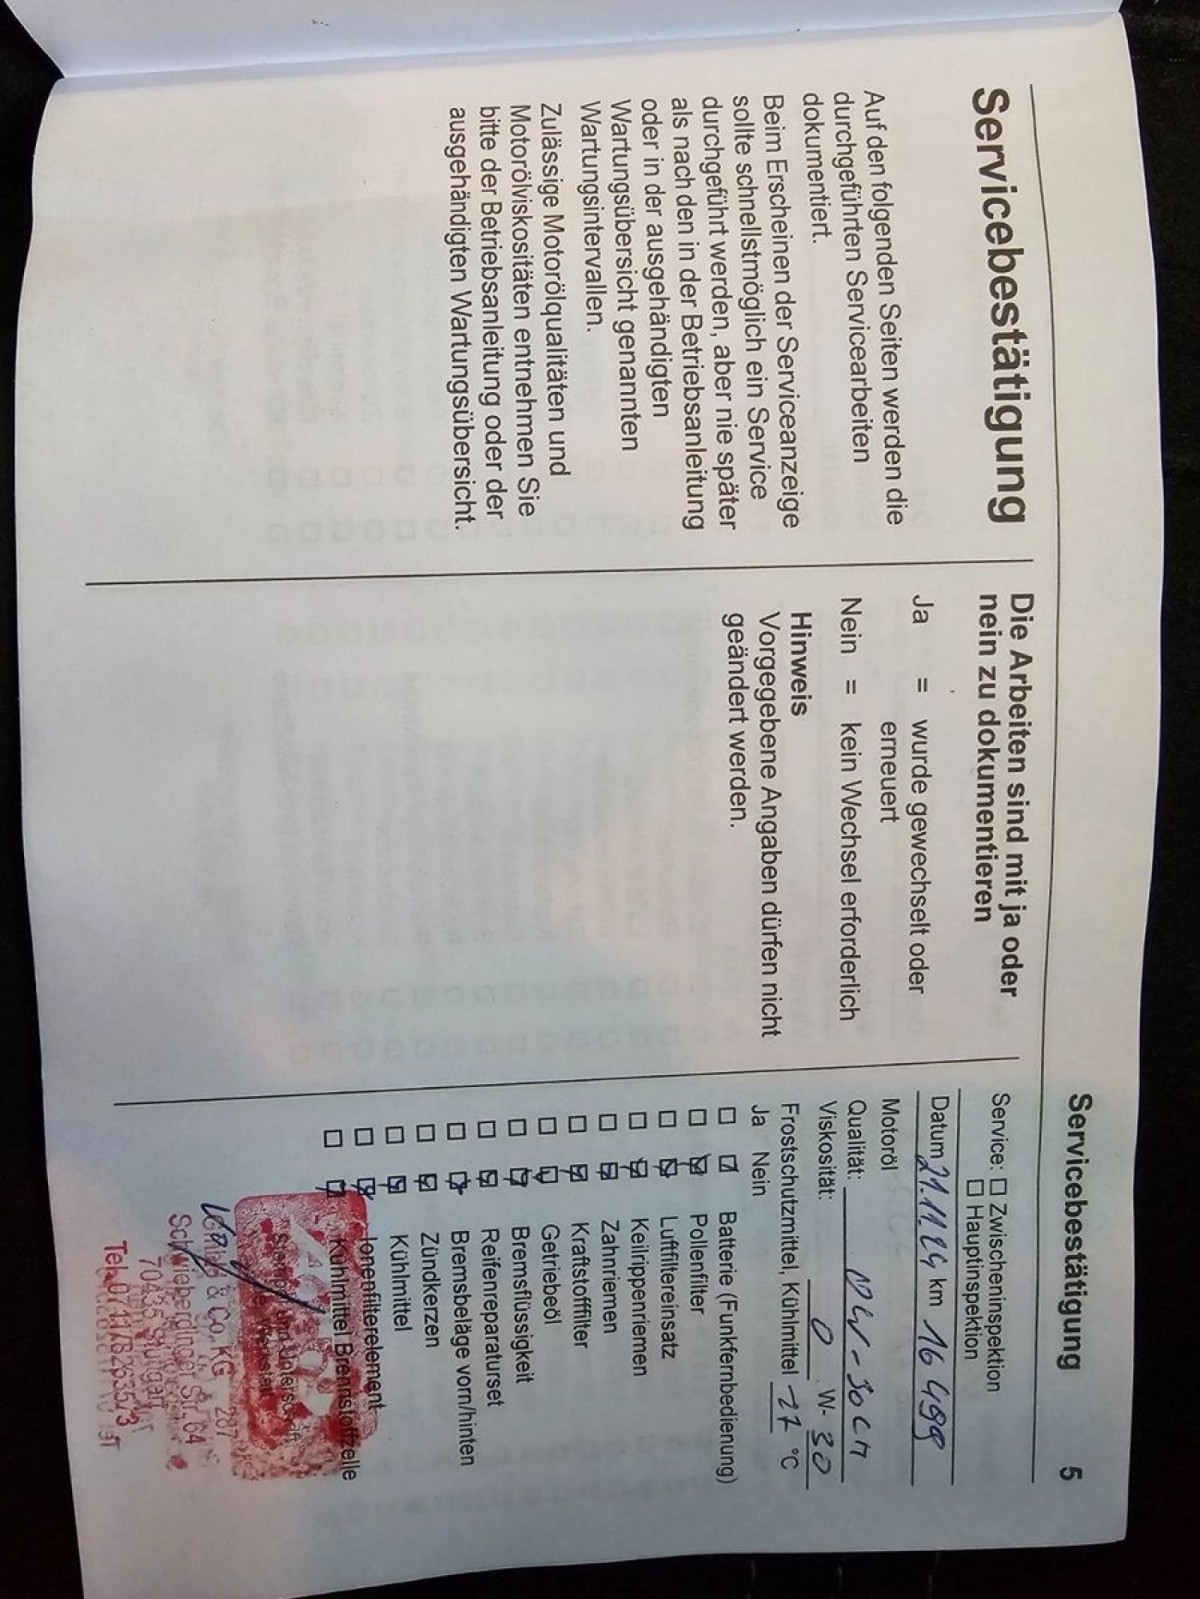 Servicebestätigung
Auf den folgenden Seiten werden die
durchgeführten Servicearbeiten
dokumentiert.
Beim Erscheinen der Serviceanzeige
sollte schnellstmöglich ein Service
durchgeführt werden, aber nie später
als nach den in der Betriebsanleitung
oder in der ausgehändigten
Wartungsübersicht genannten
Wartungsintervallen.
Zulässige Motorölqualitäten und
Motorölviskositäten entnehmen Sie
bitte der Betriebsanleitung oder der
ausgehändigten Wartungsübersicht.
Die Arbeiten sind mit ja oder
nein zu dokumentieren
Ja = wurde gewechselt oder
erneuert
Nein = kein Wechsel erforderlich
Hinweis
Vorgegebene Angaben dürfen nicht
geändert werden.
Servicebestätigung 5
Service: ☐ Zwischeninspektion
☐ Hauptinspektion
Datum 21.11.24 km 16499
Motoröl
Qualität:
Viskosität: 0 W- 30
Frostschutzmittel, Kühlmittel -27 °C
Ja Nein
☐ ☑ Batterie (Funkfernbedienung)
☐ ☑ Pollenfilter
☐ ☑ Luftfiltereinsatz
☐ ☑ Keilrippenriemen
☐ ☑ Zahnriemen
☐ ☑ Kraftstofffilter
☐ ☑ Getriebeöl
☐ ☑ Bremsflüssigkeit
☐ ☑ Reifenreparaturset
☐ ☑ Bremsbeläge vorn/hinten
☐ ☑ Zündkerzen
☐ ☑ Kühlmittel
☐ ☑ Ionenfilterelement
☐ ☑ Kühlmittel Brennstoffzelle
& Co. KG
Schwieberdinger Str. 64
70435 Stuttgart
Tel.